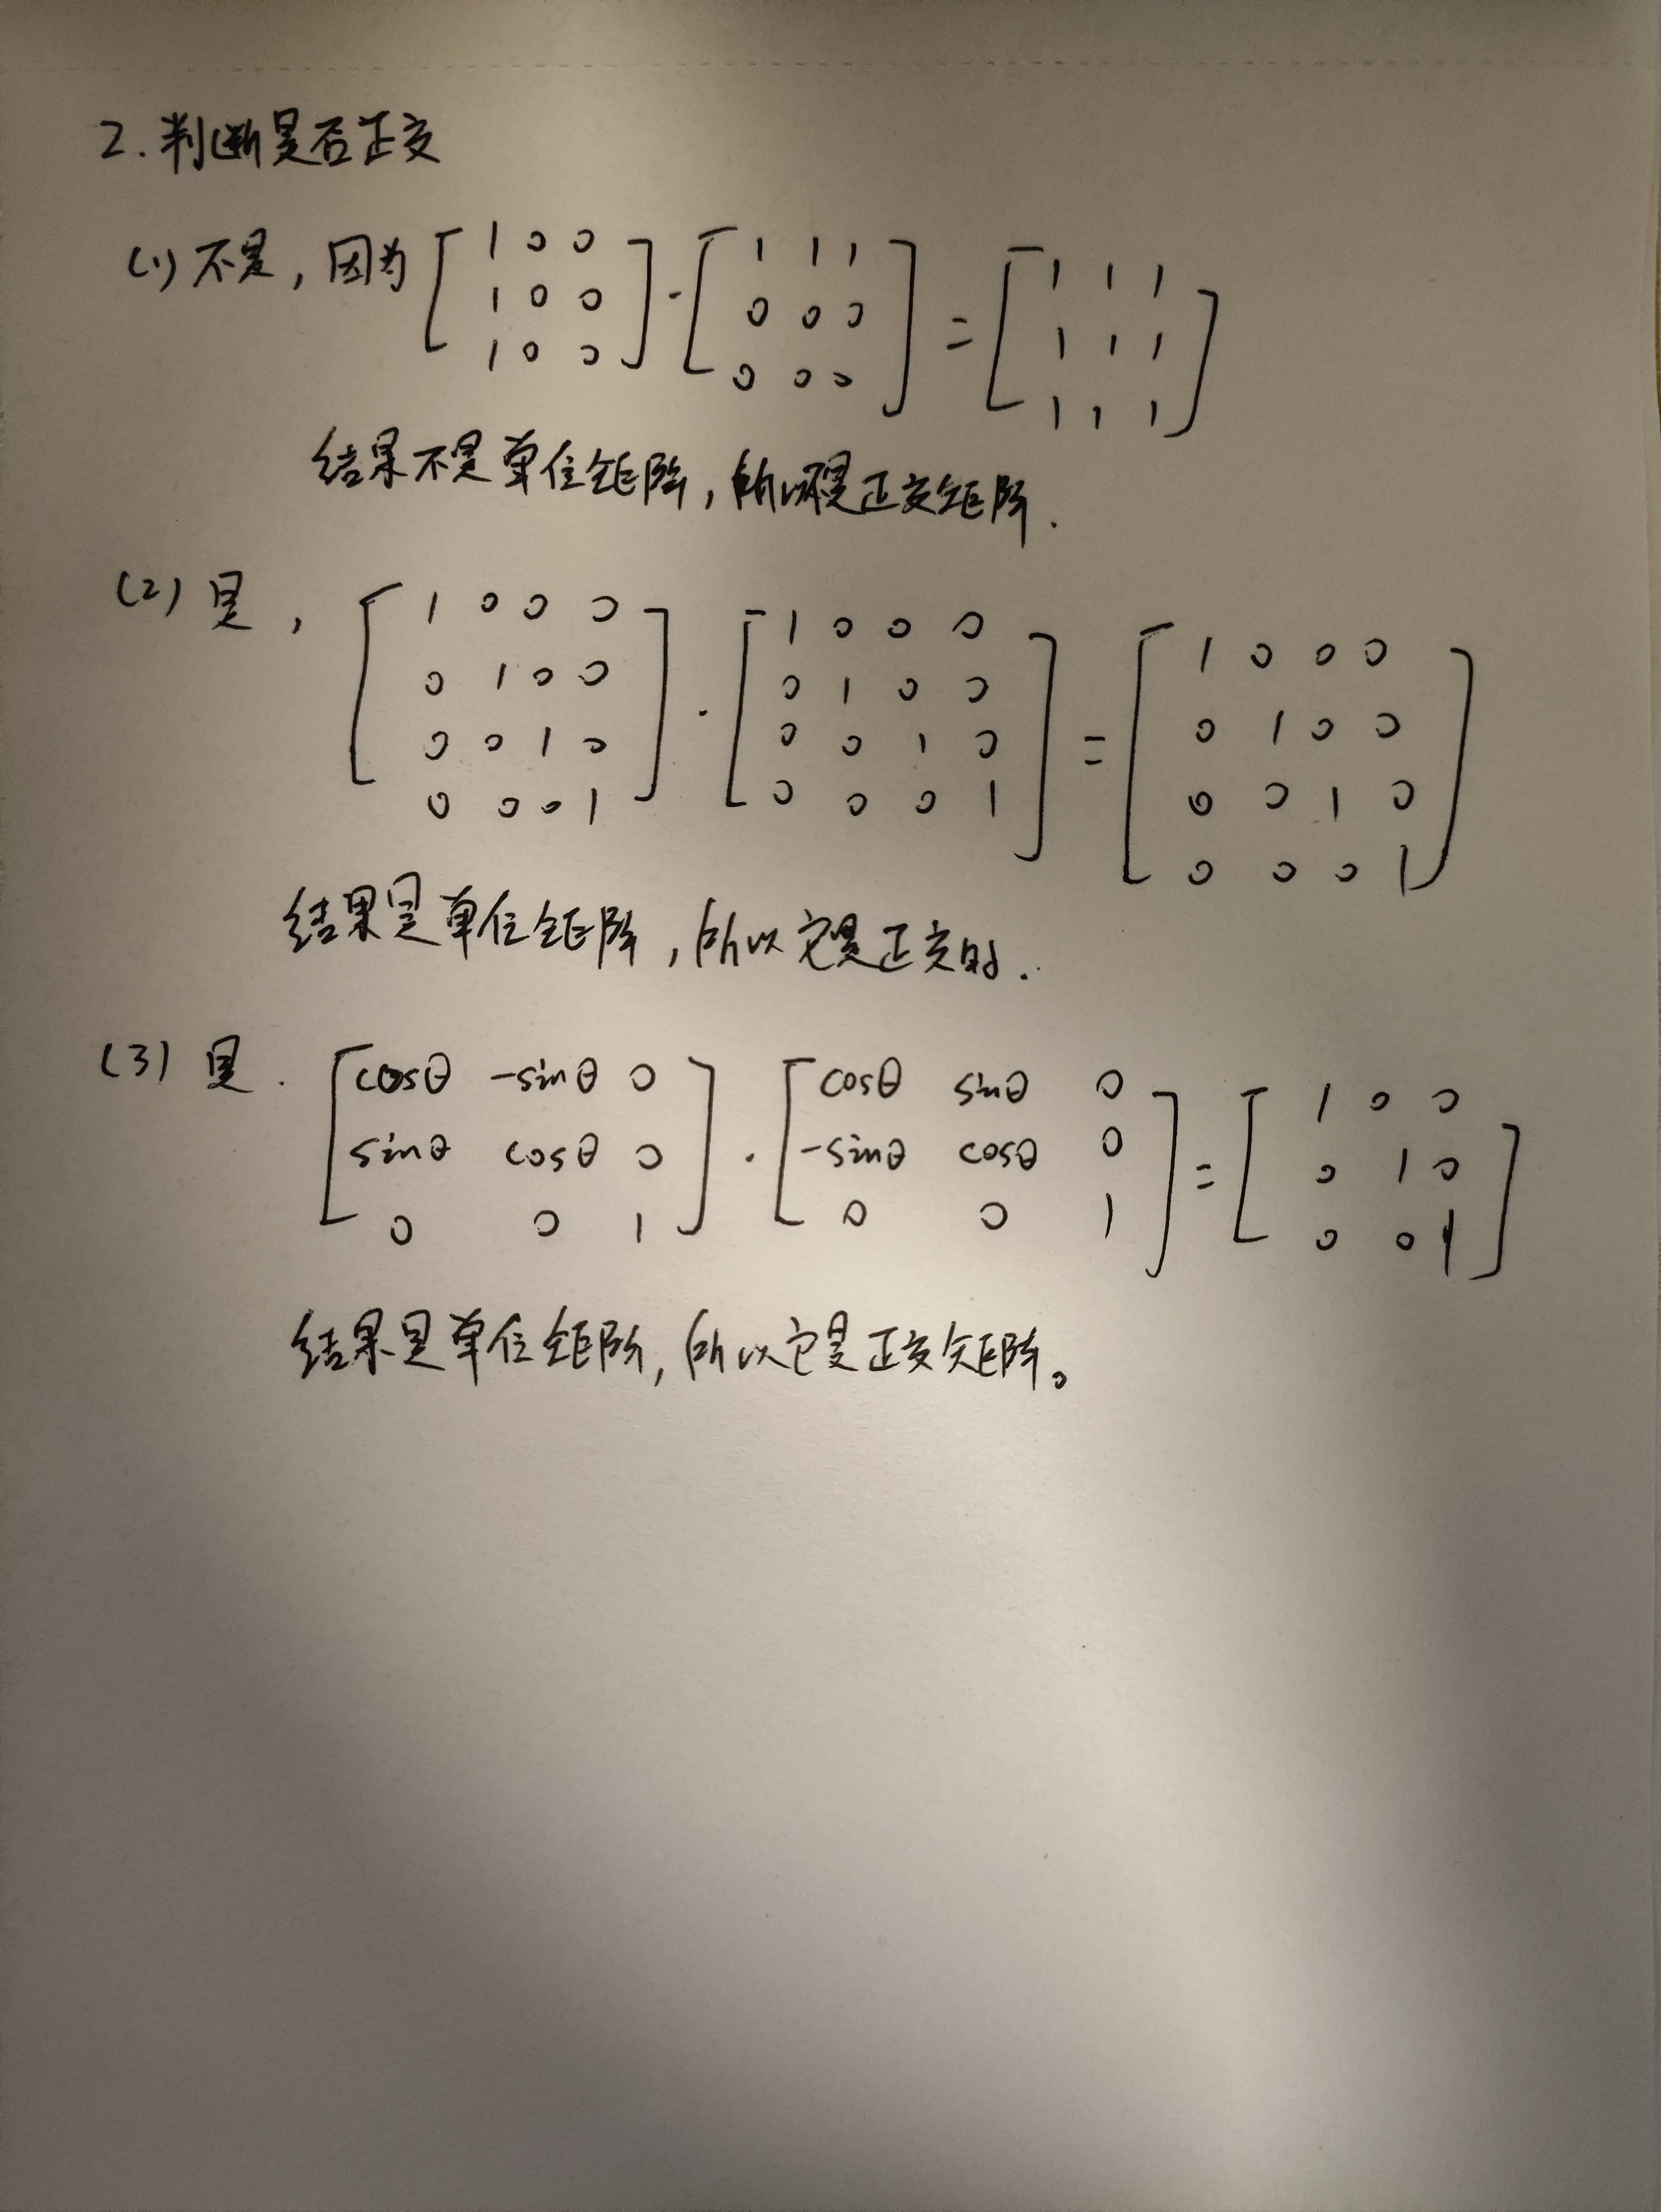 2.判断是否正交
(1)不是,因为[1 0 0; 1 0 0; 1 0 0]·[1 1 1; 0 0 0; 0 0 0]=[1 1 1; 1 1 1; 1 1 1]
结果不是单位矩阵,所以不是正交矩阵.
(2)是,[1 0 0 0; 0 1 0 0; 0 0 1 0; 0 0 0 1]·[1 0 0 0; 0 1 0 0; 0 0 1 0; 0 0 0 1]=[1 0 0 0; 0 1 0 0; 0 0 1 0; 0 0 0 1]
结果是单位矩阵,所以它是正交的.
(3)是.[cosθ -sinθ 0; sinθ cosθ 0; 0 0 1]·[cosθ sinθ 0; -sinθ cosθ 0; 0 0 1]=[1 0 0; 0 1 0; 0 0 1]
结果是单位矩阵,所以它是正交矩阵。